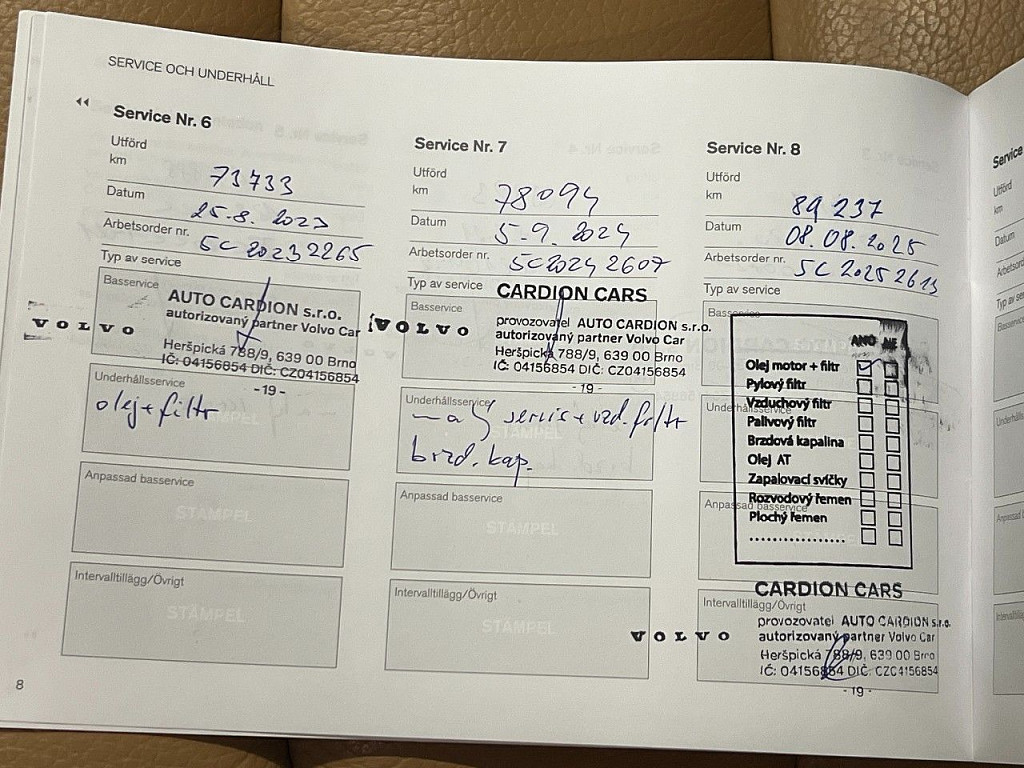 SERVICE OCH UNDERHÅLL
Service Nr. 6
Utförd
km
73733
Datum
25.8. 2023
Arbetsorder nr.
SC 2023 2265
Typ av service
Basservice
AUTO CARDION s.r.o.
autorizovaný partner Volvo Car
VOLVO
Heršpická 788/9, 639 00 Brno
IČ: 04156854 DIČ: CZ04156854
-19-
Underhållsservice
olej+filtr
STÄMPEL
Anpassad basservice
STÄMPEL
Intervalltillägg/Övrigt
STÄMPEL
8
Service Nr. 7
Utförd
km
78094
Datum
5.9. 2024
Arbetsorder nr.
SC2024 2607
Typ av service
Basservice
CARDION CARS
VOLVO
provozovatel AUTO CARDION s.r.o.
autorizovaný partner Volvo Car
Heršpická 788/9, 639 00 Brno
IČ: 04156854 DIČ: CZ04156854
-19-
Underhållsservice
malý servis+vzd.filtr
STÄMPEL
brzd.kap.
Anpassad basservice
STÄMPEL
Intervalltillägg/Övrigt
STÄMPEL
Service Nr. 8
Utförd
km
89 237
Datum
08.08.2025
Arbetsorder nr.
SC 2025 2613
Typ av service
Basservice
ANO NE
Olej motor + filtr
Pylový filtr
Vzduchový filtr
Underhållsservice
Palivový filtr
Brzdová kapalina
Olej AT
Zapalovací svíčky
Rozvodový řemen
Anpassad basservice
Plochý řemen
..................
CARDION CARS
Intervalltillägg/Övrigt
provozovatel AUTO CARDION s.r.o.
VOLVO
autorizovaný partner Volvo Car
Heršpická 788/9, 639 00 Brno
IČ: 04156854 DIČ: CZ04156854
-19-
Service
Utförd
km
Datum